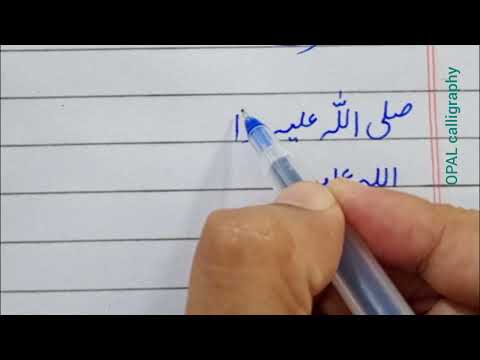 صلی اللّٰہ علیہ
اللہ
OPAL calligraphy